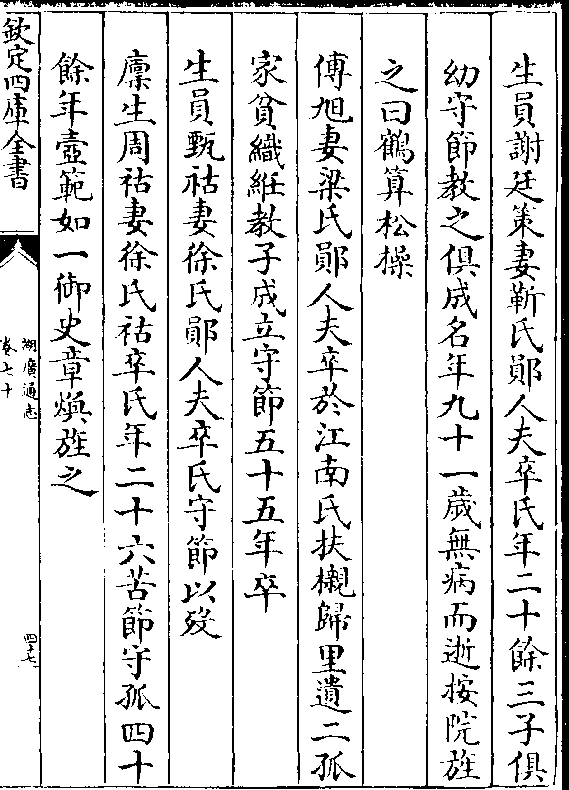 生員謝廷策妻靳氏鄖人夫卒氏年二十餘三子俱
幼守節教之俱成名年九十一歲無病而逝按院旌
之曰鶴算松操
傅旭妻梁氏鄖人夫卒於江南氏扶櫬歸里遺二孤
家貧織絍教子成立守節五十五年卒
生員甄祜妻徐氏鄖人夫卒氏守節以歿
廪生周祜妻徐氏祜卒氏年二十六苦節守孤四十
餘年壼範如一御史章煥旌之
欽定四庫全書
湖廣通志
卷七十
四十七